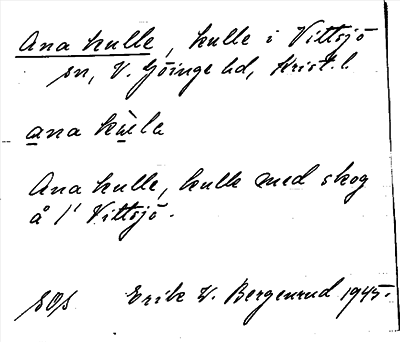 Ana kulle, kulle i Vittsjö
sn, V. Göinge hd, Krist. l.
ana kùla
Ana kulle, kulle med skog
å 1' Vittsjö.
Erik W. Bergenrud 1945.